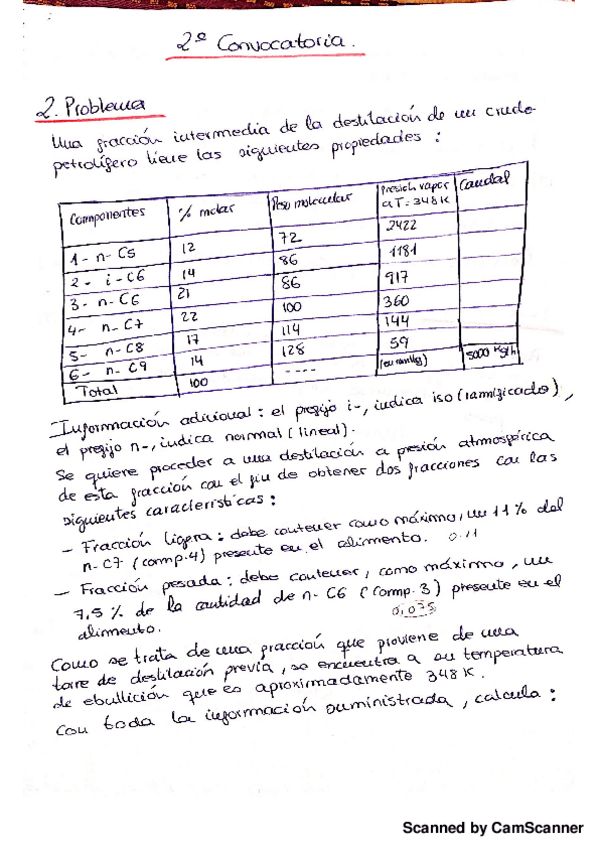 2º Convocatoria.
2. Problema
Una fracción intermedia de la destilación de un crudo
petrolífero tiene las siguientes propiedades :
Componentes % molar Peso molecular Presión vapor a T: 348 K Caudal
1- n- C5 12 72 2422
2 - i - C6 14 86 1181
3- n- C6 21 86 917
4- n- C7 22 100 360
5- n- C8 17 114 144
6- n- C9 14 128 59
Total 100 ---- (en mmHg) 5000 Kg/h
Información adicional : el prefijo i-, indica iso (ramificado),
el prefijo n-, indica normal (lineal).
Se quiere proceder a una destilación a presión atmosférica
de esta fracción con el fin de obtener dos fracciones con las
siguientes características :
- Fracción ligera : debe contener como máximo, un 11 % del
n- C7 (comp. 4) presente en el alimento. 0.11
- Fracción pesada : debe contener, como máximo, un
7,5 % de la cantidad de n- C6 (comp. 3) presente en el
alimento. 0,075
Como se trata de una fracción que proviene de una
torre de destilación previa, se encuentra a su temperatura
de ebullición que es aproximadamente 348 K.
Con toda la información suministrada, calcula :
Scanned by CamScanner